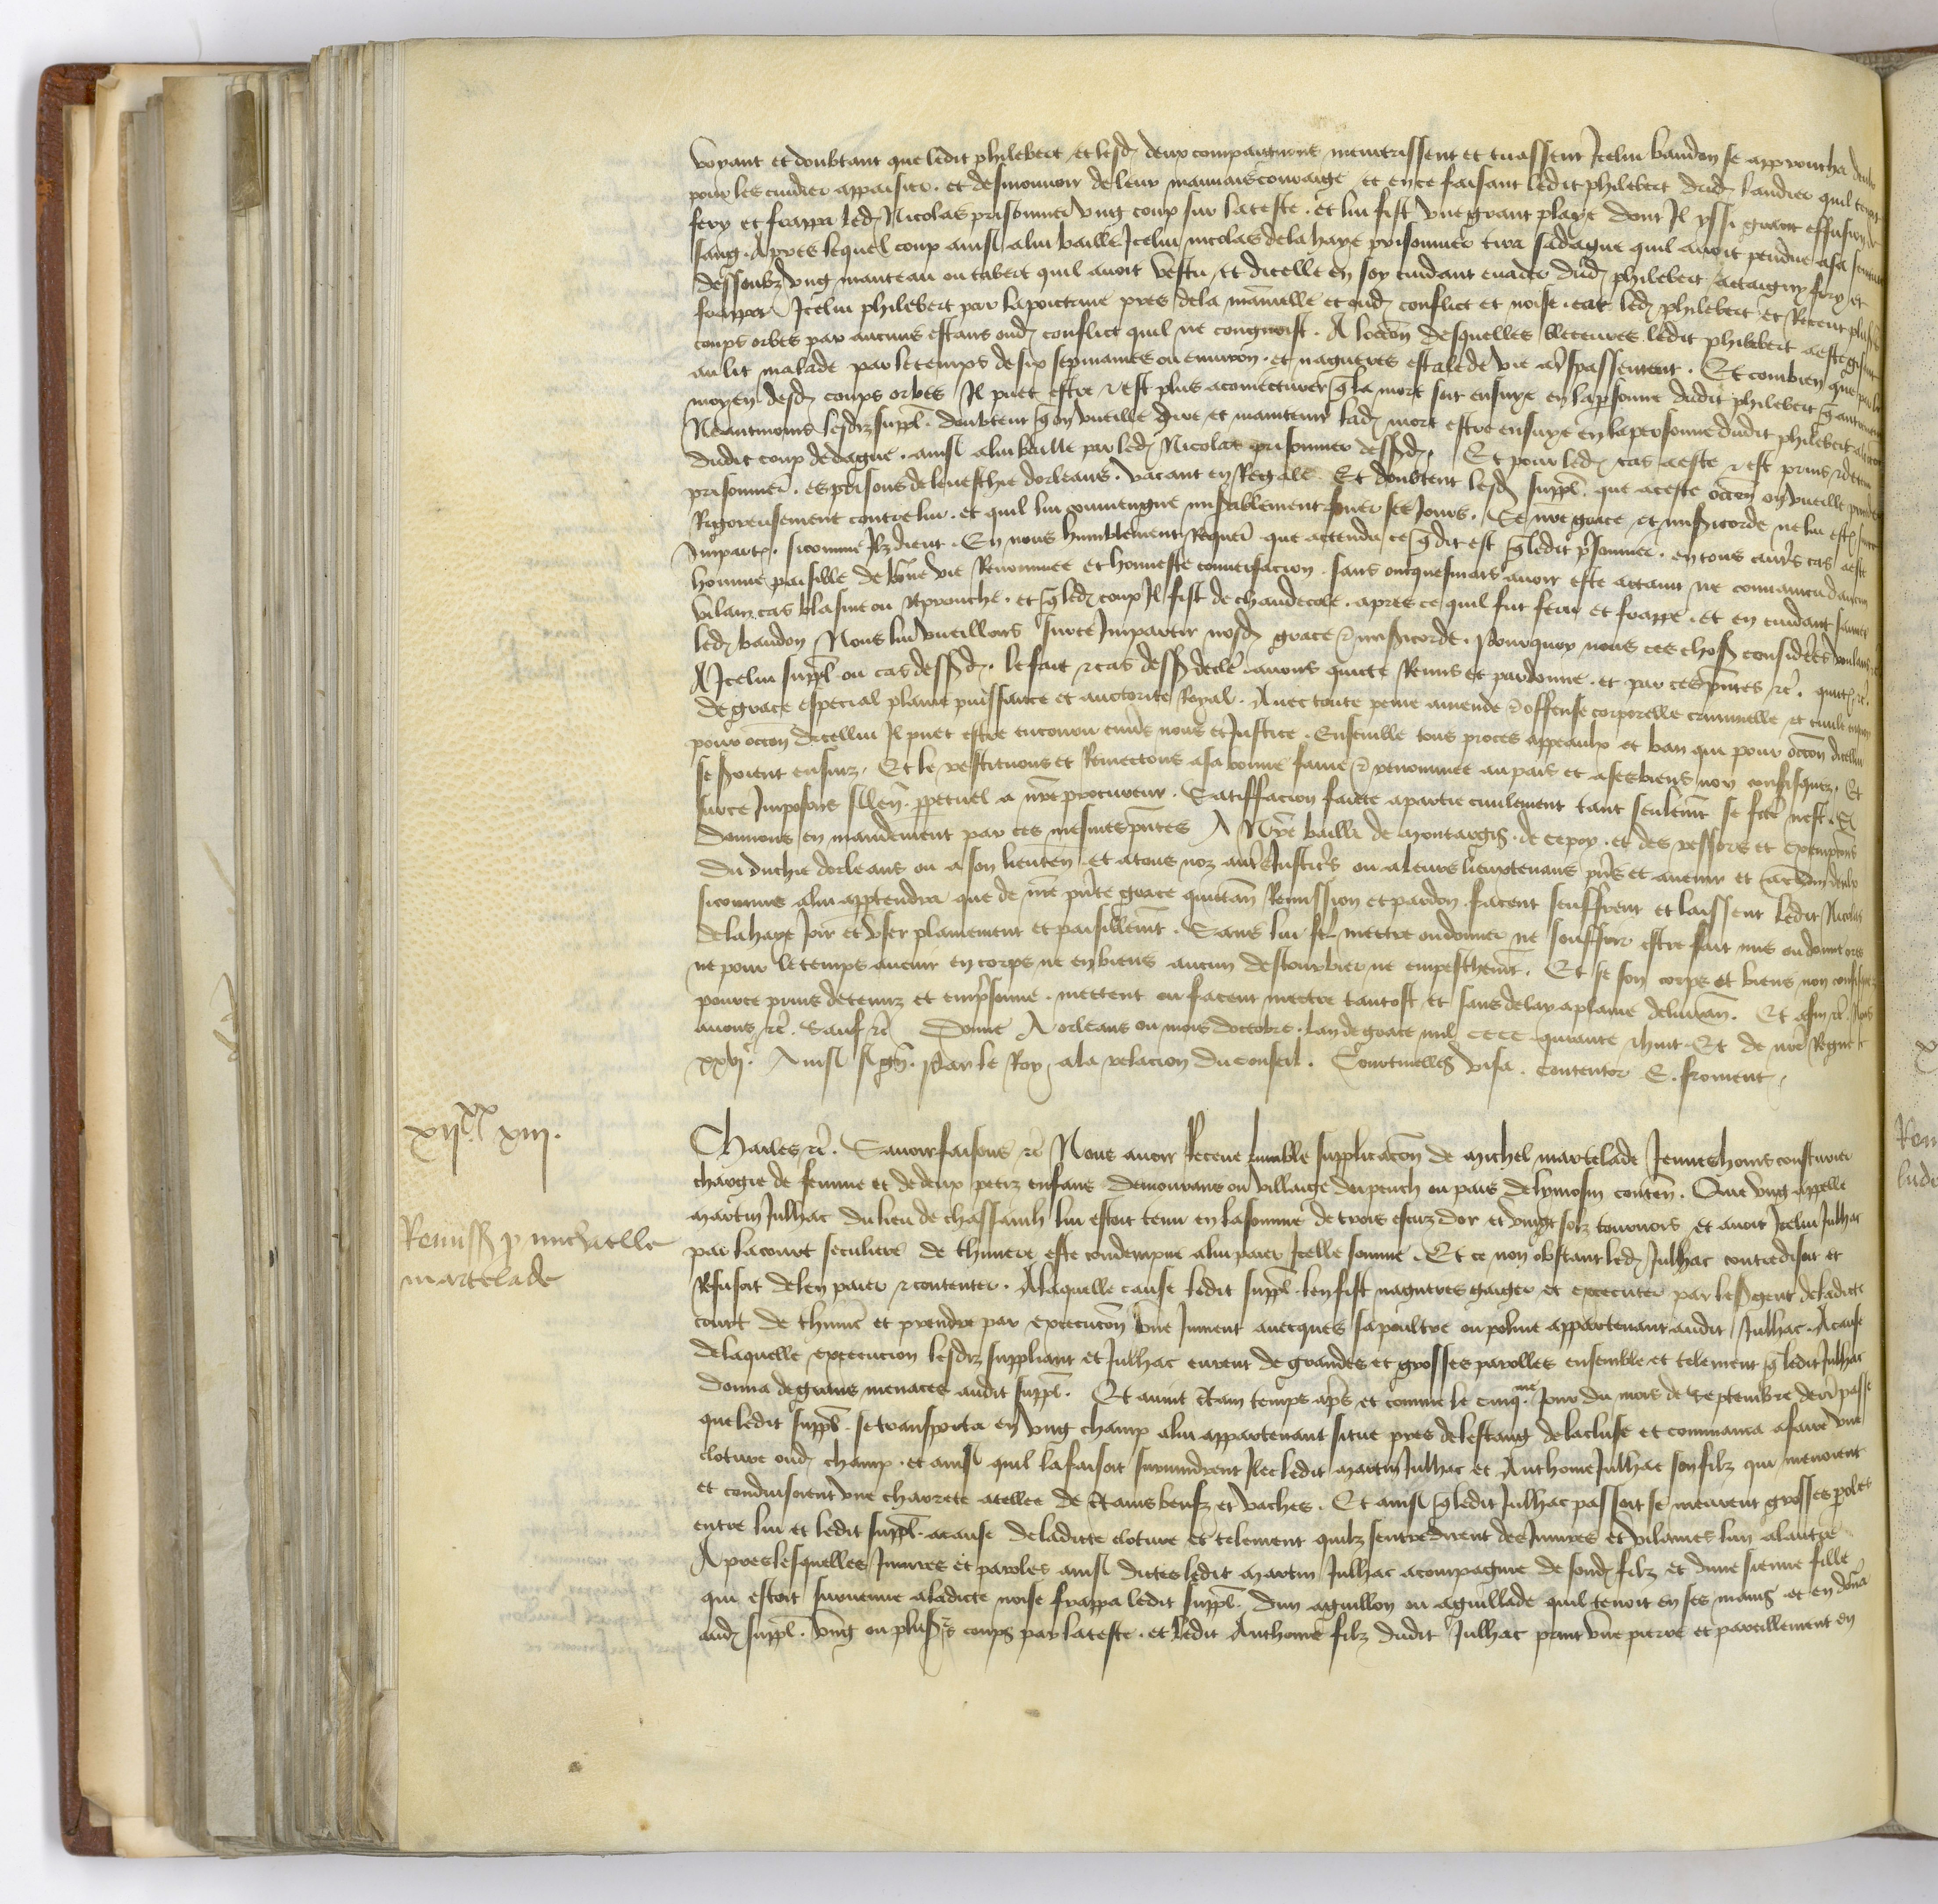 voyant et doubtant que ledit philebert et lesd deux compaignons meurtrissent et tuassent Icelui baudon se approucha deulx
pour les cuidier appaisier. et desmouvoir de leur mauvais couraige et en ce faisant ledit philebert dud landier quil tenoit
fery et frappa led Nicolas prisonnier ung coup sur la teste. et lui fist une grant playe dont Il yssi grant effusion de
sang. Apres lequel coup ainsi a lui baille Icelui nicolas de la haye prisonnier tira sa dague quil avoit pendue a sa seinture
dessoubz ung manteau ou tabert quil avoit vestu et dicelle en soy cuidant evader dud philebert actaigny fery et
frappa Icelui philebert par la poictrine pres de la mamelle et oud conflict et noise. led philebert et Receut plusrs
coups orbes par aucuns estans oud conflict quil ne congnoist. A loccon desquelles bleceures ledit philebert a este gisant
au lit malade par le temps de six sepmaines ou environ. et nagueres est ale de vie a trespassement. Et combien que par le
moyen desd coups orbes Il puet estre et est plus a coniecturer que la mort sur ensuye en la personne dudit philebert que autrement
Neantmoins lesdiz suppl. doubtent que on vueille dire et maintenir lad mort estre ensuye en la personne dudit philebert a loccon
dudit coup de dague. ainsi a lui baille par led Nicolas prisonnier dessusd. Et pour led cas a este et est prins et detenu
prisonnier. es prisons de leveschie dorleans. vacant en Regale. Et doubtent lesd suppl. que a ceste occon on vueille proceder
Rigoreusement contre lui. et quil lui conviengne miserablement finer ses Jours. Se nre grace et misericorde ne lui est sur ce
Impartie. sicomme Ilz dient. En nous humblement Requerant que actendu ce que dit est que ledit prisonnier. en tous autres cas a este
homme paisible de bonne vie Renommee et honneste conversacion. sans oncquesmais avoir este actaint ne convaincu daucun
vilain cas blasme ou Reprouche. et que led coup Il fist de chaudecole. apres ce quil fut feru et frappe. et en cuidant sauver
led baudon Nous lui vueillons sur ce Impartir nosd grace et misericorde. Pourquoy nous ces choses considerees voulans etc
A Icelui suppl. ou cas dessusd. le fait et cas dessus declaire avons quicte Remis et pardonne. et par ces pntes etc. quictons etc.
de grace especial plaine puissance et auctorite Royal. Avec toute peine amende et offense corporelle criminelle et civile en quoy
pour occon dicellui Il puet estre encouru envers nous et Justice. Ensemble tous proces appeaulx et ban qui pour occon dicellui
se seroient ensuiz. Et le restituons et Remectons a sa bonne fame et renommee au pais et a ses biens non confisquez. Et
sur ce Imposons silence perpetuel a nre procureur. Satisfacion faicte a partie civilement tant seulement se fce nest. Si
donnons en mandement par ces mesmes pntes A Nre bailli de montargis. de cepoy. et des ressors et exempcions
du duchie dorleans ou a son lieuten. et a tous noz autres Justiciers ou a leurs lieuxtenans pns et avenir et a chacun deulx
sicomme a lui appartendra que de nre pnte grace quictance Remission et pardon facent seuffrent et laissent ledit Nicolas
de la haye Joir et user plainement et paisiblement. Sans lui fere mectre ou donner ne souffrir estre fait mis ou donne ores
ne pour le temps avenir en corps ne en biens aucun destourbier ne empeschement. Et se son corps et biens non confisquez
pource prins detenuz et emprisonne. mectent ou facent mectre tantost et sans delay a plaine delivrance. Et afin etc. Nous
avons etc. Sauf etc. Donne A orleans ou mois doctobre. lan de grace mil CCCC. quarante et huit. Et de nre Regne le
xxvje. Ainsi signe. Par le Roy. a la relacion du conseil. Courtinelles visa. Contentor E. froment.
xijxx xiij.
Remiss p michaelle
martelade
Charles etc. Savoir faisons etc. Nous avoir Receue humble supplicacon de michel martelade Jeunes homs cousturier
chargie de femme et de deux petiz enfans demourans ou villaige du peuch ou pais de lymosin conten. Que ung appelle
martin Julhac du lieu de chassainh lui estoit tenu en la somme de trois escuz dor et vingt solz tournois et avoit Icelui Julhac
par la court seculiere de thimere este condempne a lui paier Icelle somme. Et ce non obstant led Julhac contredisoit et
Refusoit de len paier et contenter. A laquelle cause ledit suppl. len fist nagueres gaiger et executer par le sergent de ladicte
court de thimere et prendre par execucon une Jument avecques sa poultre ou poline appartenant audit Julhac. A cause
de laquelle execucion lesdiz suppliant et Julhac eurent de grandes et grosses parolles ensemble et telement que ledit Julhac
donna de grans menaces audit suppl. Et avint certain temps apres et comme le cinqme Jour du mois de septembre derr passe
que ledit suppl. se transporta en ung champ a lui appartenant situe pres de lestang de lacluse et commanca a faire une
cloture oud champ. et ainsi quil la faisoit survindrent Ilec ledit martin Julhac et Anthoine Julhac son filz qui menoient
et conduisoient une charrete atelee de certains beufz et vaches. Et ainsi que ledit Julhac passoit se meurent grosses paroles
entre lui et ledit suppl. a cause de ladicte cloture et telement quilz sentredirent des Iniures et vilanies lun a lautre
Apres lesquelles Iniures et paroles ainsi dictes ledit martin Julhac acompaigne de sond filz et dune sienne fille
qui estoit survenue a ladicte noise frappa ledit suppl. dun aguillon ou aguillade quil tenoit en ses mains et en donna
aud suppl. ung ou plusrs coups par la teste. et ledit Anthoine filz dudit Julhac print une pierre et pareillement en